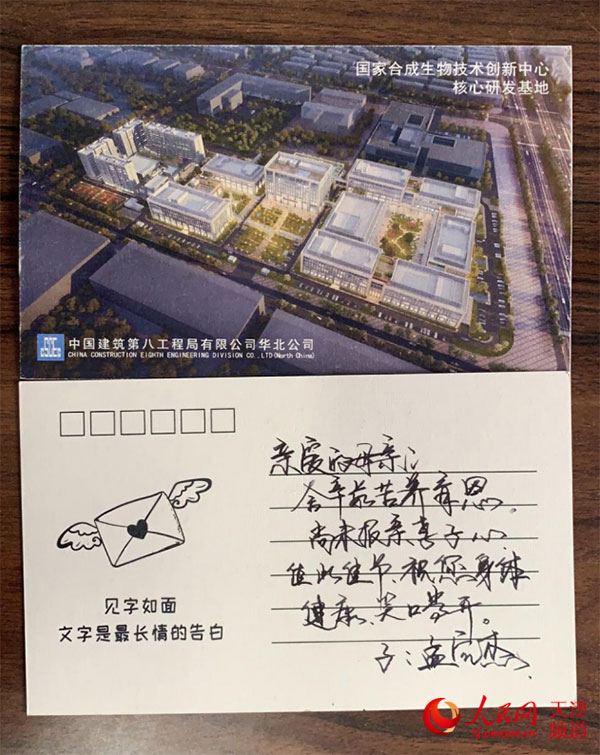 国家合成生物技术创新中心
核心研发基地
中国建筑第八工程局有限公司华北公司
CHINA CONSTRUCTION EIGHTH ENGINEERING DIVISION CO.,LTD(North China)
亲爱的母亲：
含辛茹苦养育恩
尚未报亲喜子心
值此佳节、祝您身体
健康、笑口常开。
子：孟
见字如面
文字是最长情的告白
人民网 天津频道